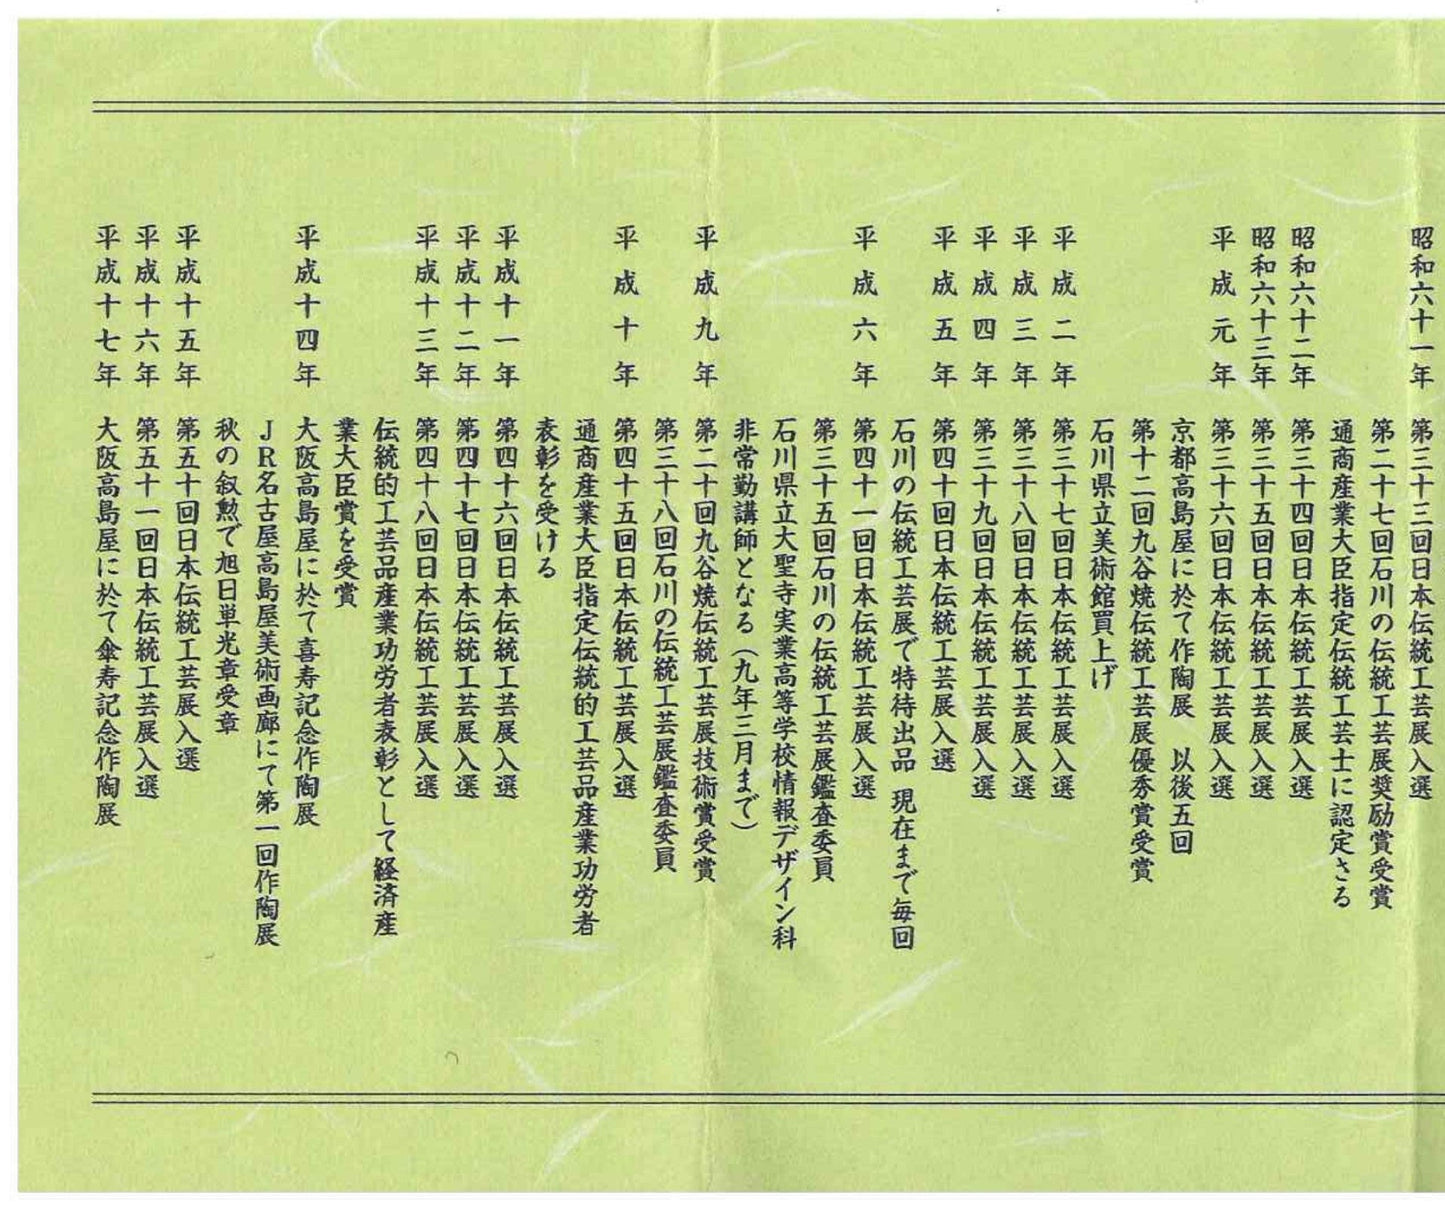 昭和六十一年 第三十三回日本伝統工芸展入選
第二十七回石川の伝統工芸展奨励賞受賞
通商産業大臣指定伝統工芸士に認定さる
昭和六十二年 第三十四回日本伝統工芸展入選
昭和六十三年 第三十五回日本伝統工芸展入選
平成元年 第三十六回日本伝統工芸展入選
京都高島屋に於て作陶展 以後五回
第十二回九谷焼伝統工芸展優秀賞受賞
石川県立美術館買上げ
平成二年 第三十七回日本伝統工芸展入選
平成三年 第三十八回日本伝統工芸展入選
平成四年 第三十九回日本伝統工芸展入選
平成五年 第四十回日本伝統工芸展入選
石川の伝統工芸展で特待出品 現在まで毎回
平成六年 第四十一回日本伝統工芸展入選
第三十五回石川の伝統工芸展鑑査委員
石川県立大聖寺実業高等学校情報デザイン科
非常勤講師となる（九年三月まで）
平成九年 第二十回九谷焼伝統工芸展技術賞受賞
第三十八回石川の伝統工芸展鑑査委員
平成十年 第四十五回日本伝統工芸展入選
通商産業大臣指定伝統的工芸品産業功労者
表彰を受ける
平成十一年 第四十六回日本伝統工芸展入選
平成十二年 第四十七回日本伝統工芸展入選
平成十三年 第四十八回日本伝統工芸展入選
伝統的工芸品産業功労者表彰として経済産
業大臣賞を受賞
平成十四年 大阪高島屋に於て喜寿記念作陶展
ＪＲ名古屋高島屋美術画廊にて第一回作陶展
秋の叙勲で旭日単光章受章
平成十五年 第五十回日本伝統工芸展入選
平成十六年 第五十一回日本伝統工芸展入選
平成十七年 大阪高島屋に於て傘寿記念作陶展